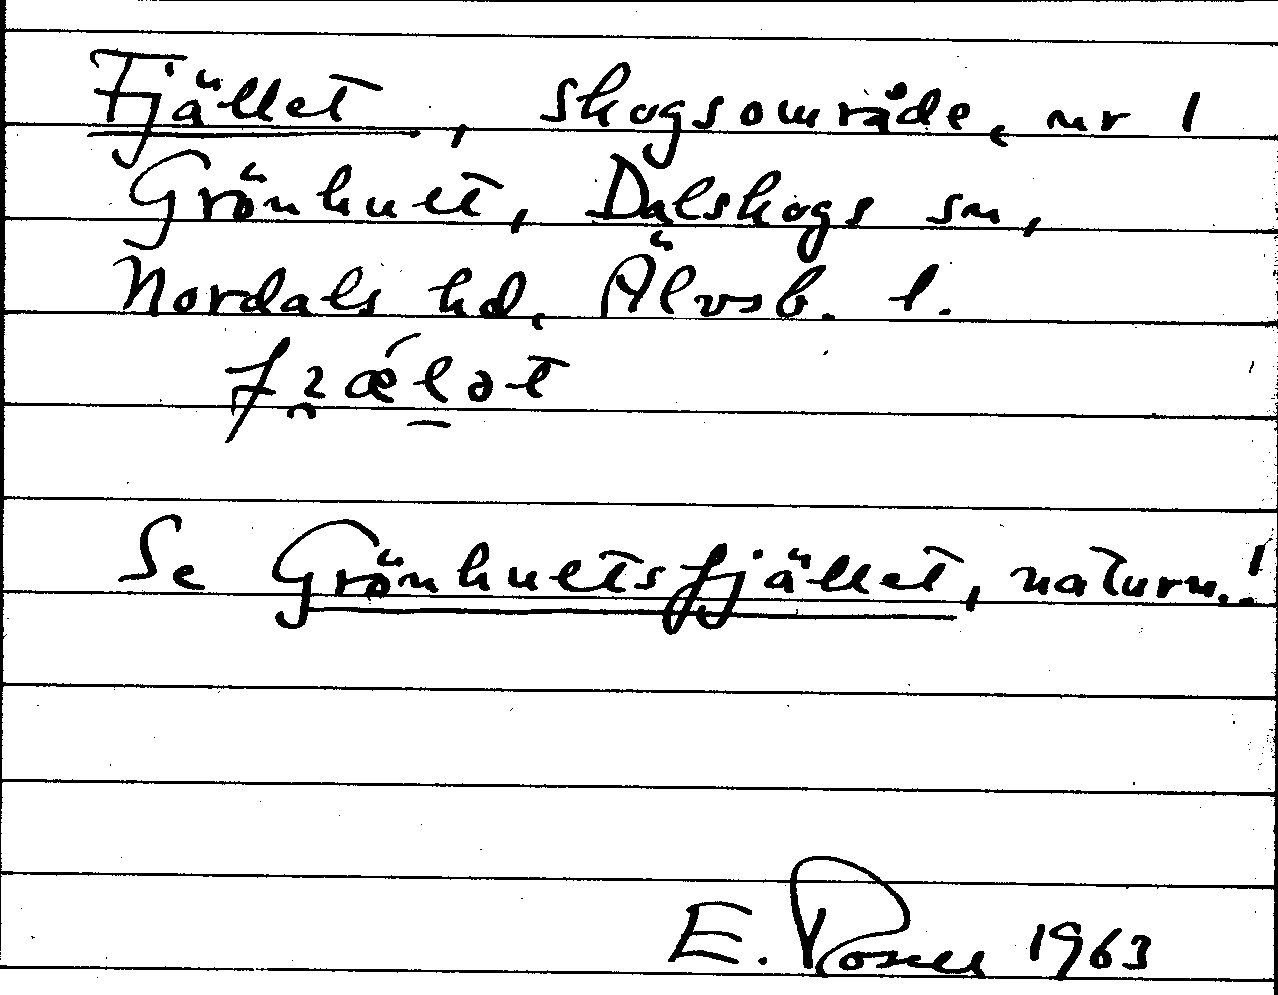 Fjället, skogsområde, nr 1
Grönhult, Dalskogs sn,
Nordals hd, Älvsb. l.
Se Grönhultsfjället, naturn.!
E. Rosell 1963